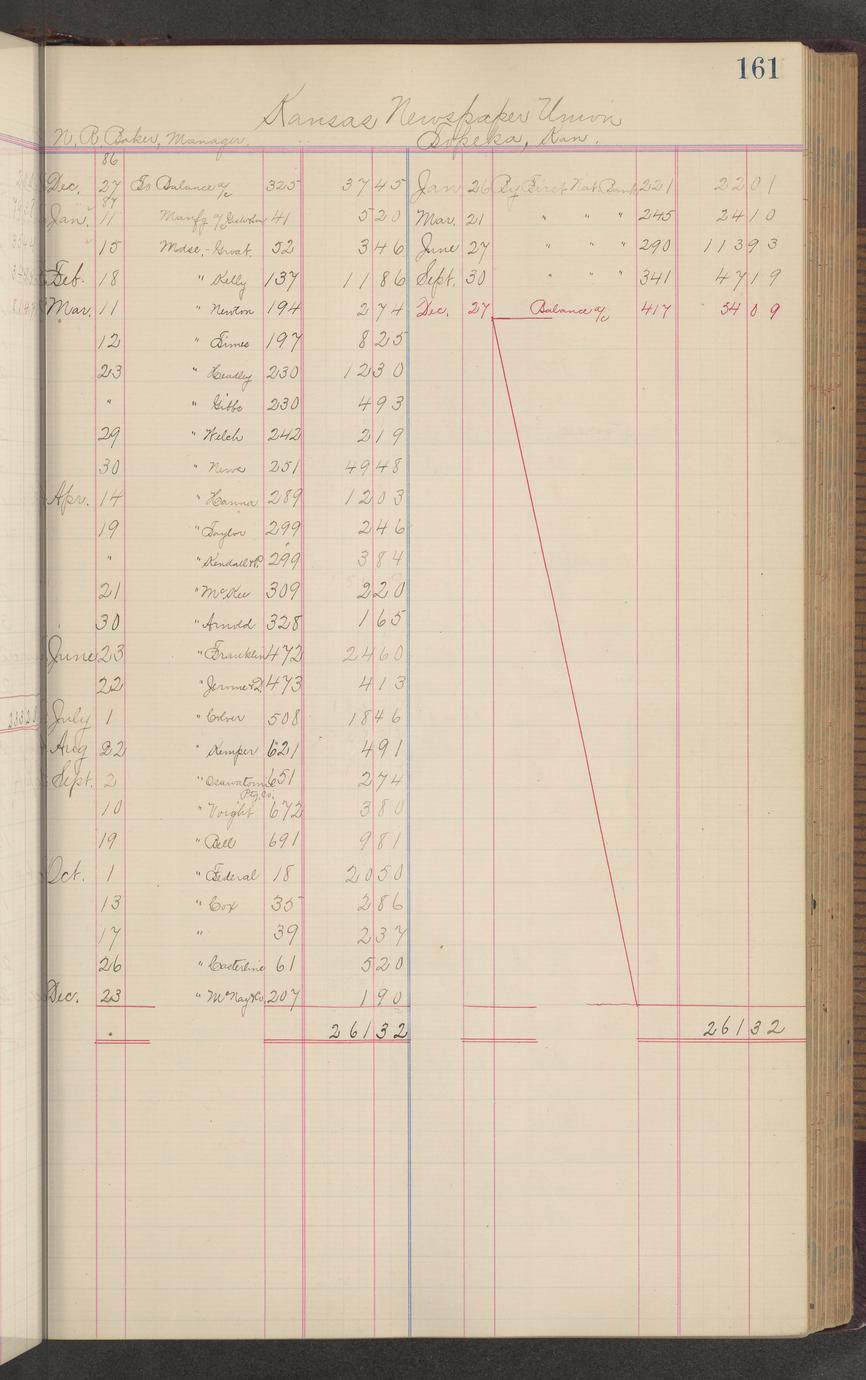 161
Kansas Newspaper Union
N. R. Baker, Manager. Topeka, Kan.
86
Dec. 27 To Balance a/c 325 37 45 Jan 26 By First Nat. Bank 221 22 01
87
Jan. 11 Manfg a/c 41 5 20 Mar. 21 " " " 245 24 10
" 15 Mdse.- Groat. 52 3 46 June 27 " " " 290 113 93
Feb. 18 " Kelly 137 11 86 Sept. 30 " " " 341 47 19
Mar. 11 " Newton 194 2 74 Dec. 27 Balance a/c 417 54 09
12 " Times 197 8 25
23 " Headley 230 12 30
" " Gibbs 230 4 93
29 " Welch 242 2 19
30 " News 251 49 48
Apr. 14 " Hanna 289 12 03
19 " Taylor 299 2 46
" " Kendall & P. 299 3 84
21 " McKee 309 2 20
30 " Arnold 328 1 65
June 23 " Franklin 472 24 60
22 " Jerome & D. 473 4 13
July 1 " Colver 508 18 46
Aug 22 " Kemper 621 4 91
Sept. 2 " Osawatomie 651 2 74
Ptg. Co.
10 " Voight 672 3 80
19 " Bell 691 9 81
Oct. 1 " Federal 18 20 50
13 " Cox 35 2 86
17 " 39 2 37
26 " Casterline 61 5 20
Dec. 23 " McNay & Co. 207 1 90
261 32 261 32